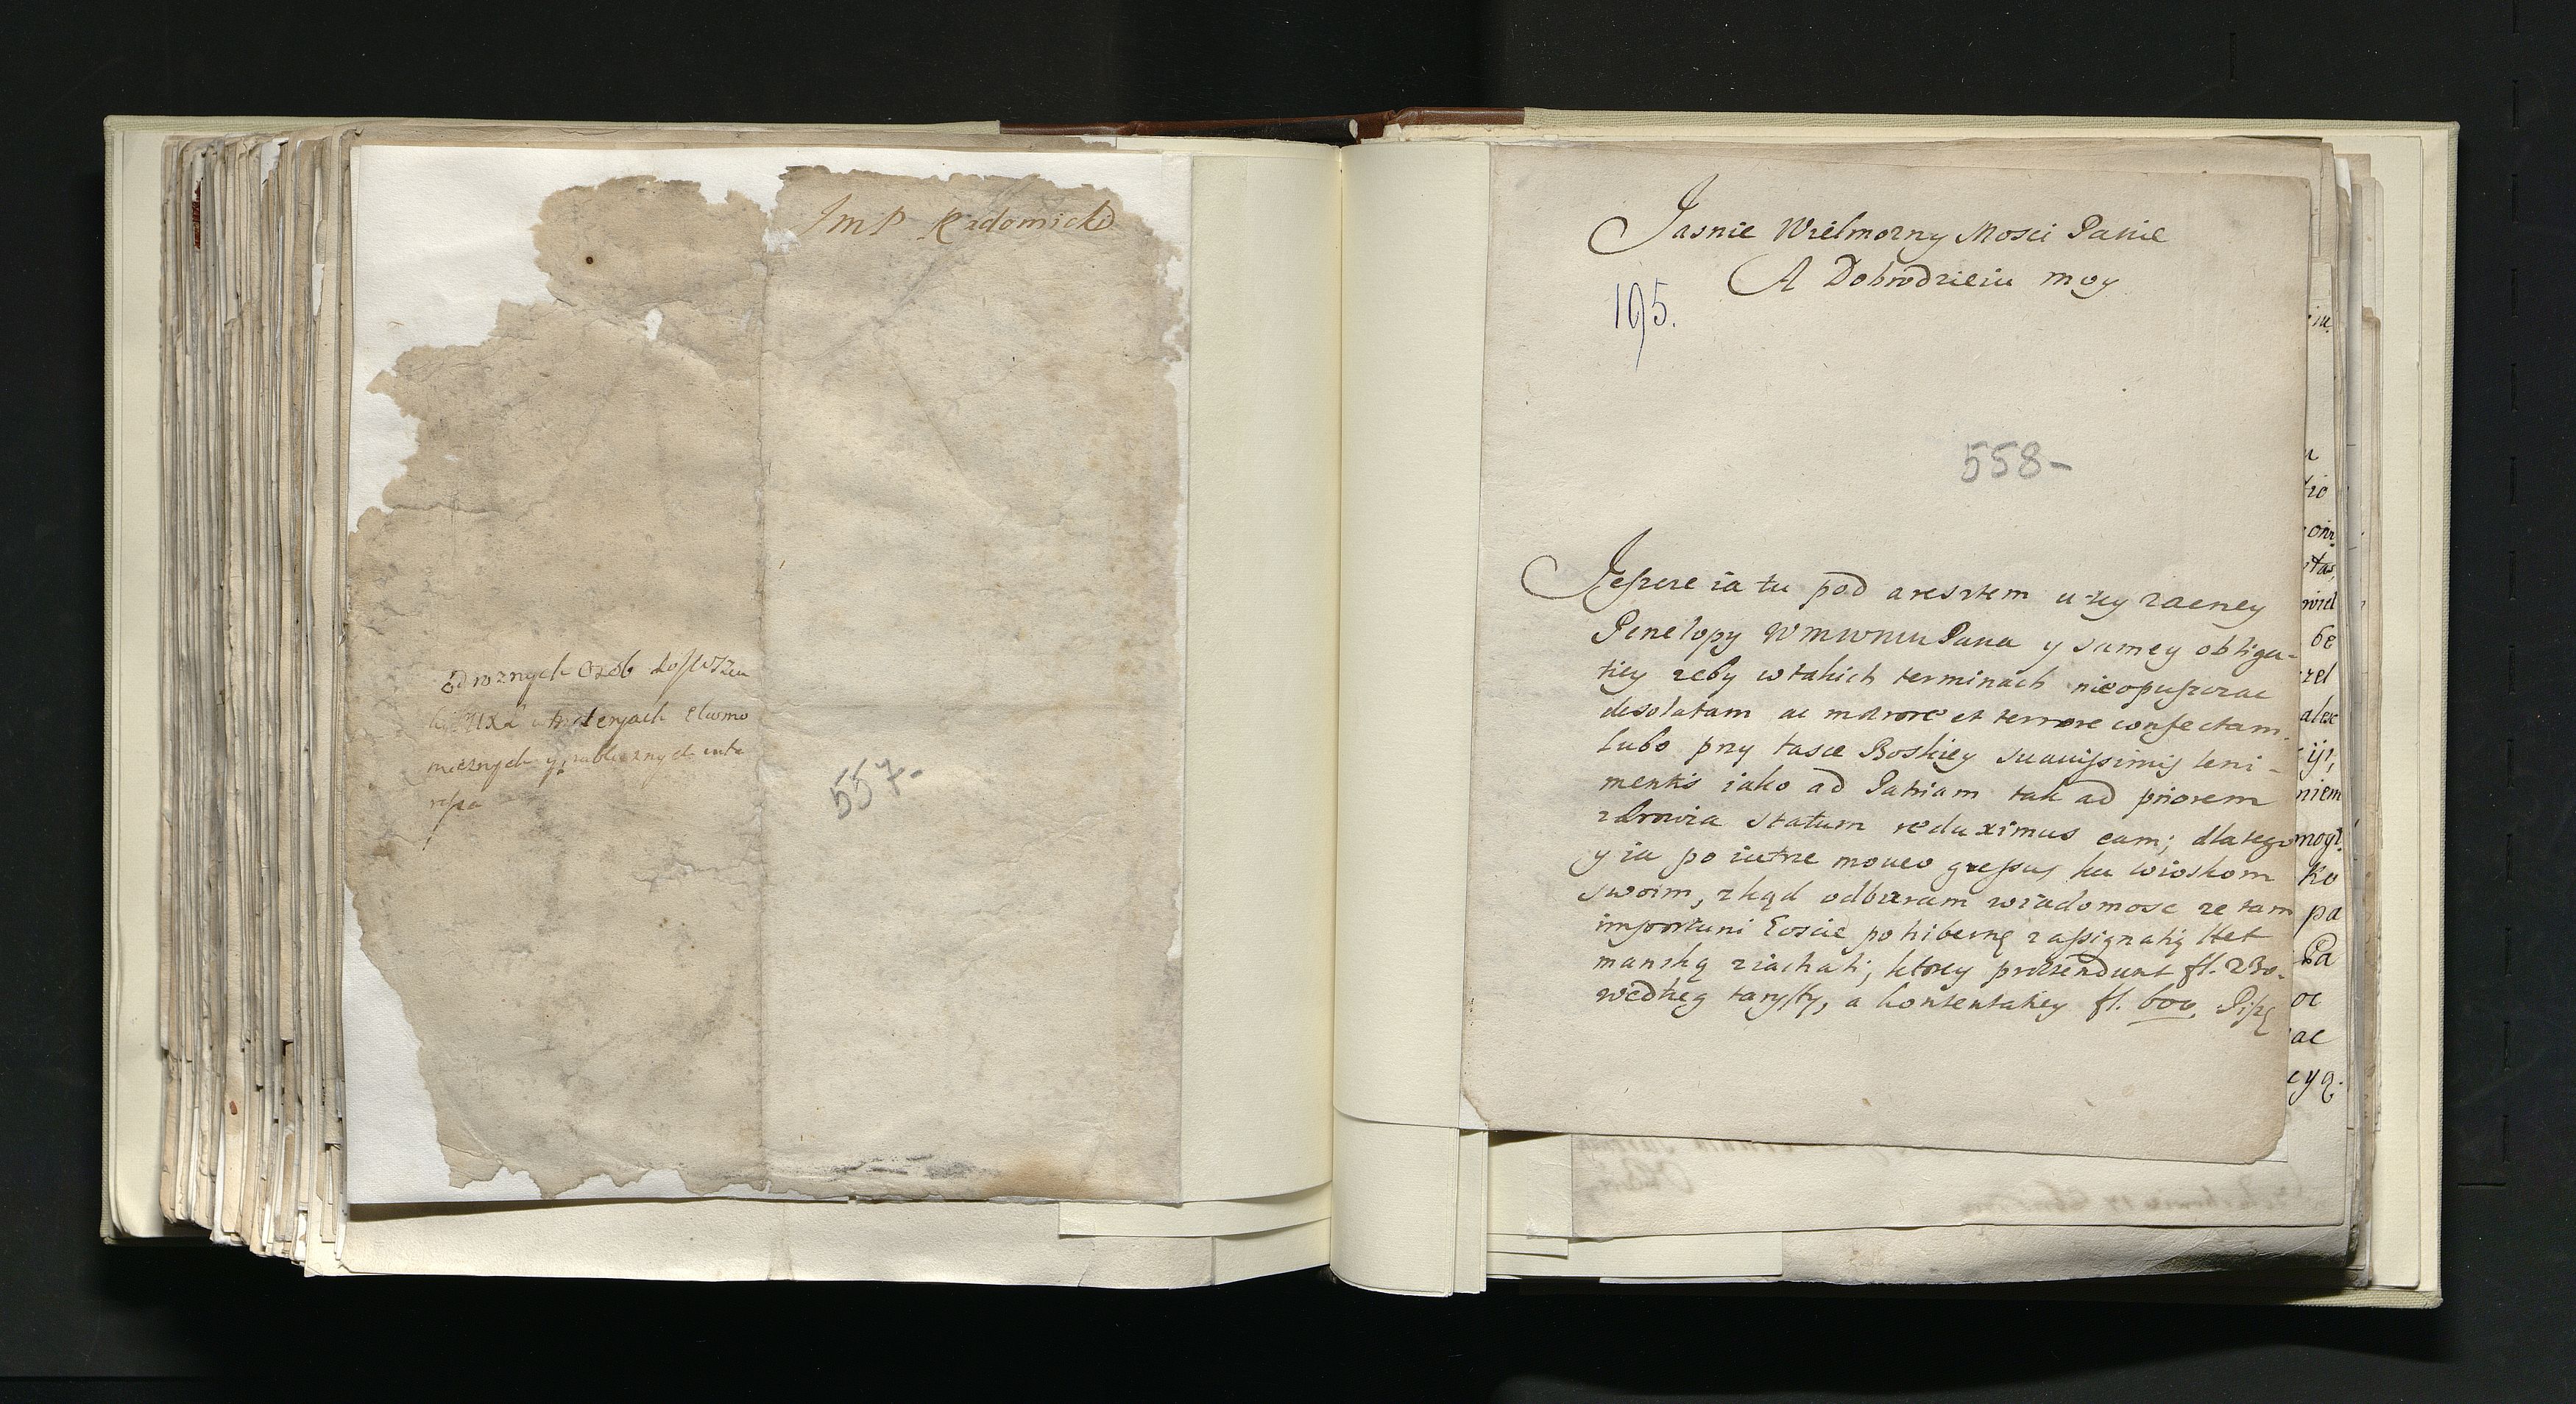 Jm P Radomicki
Od roznych Osob
materyach Ekono
micznych y publicznych inte
ressa
557.
Jasnie Wielmozny Mosci Panie
A Dobrodzieiu moy
195.
558-
Jeszcze ia tu pod aresztem u tey zacney
Penelopy WMWMM Pana y samey obliga-
tiey zeby w takich terminach nieopuszczac
desolatam ac mærore et terrore confectam,
lubo przy łasce Boskiey suauissimis leni-
mentis iako ad Patriam tak ad priorem
zdrowia statum reduximus eam; dlatego
y ia po iutrze moueo gressus ku wioskom
swoim, zkąd odbieram wiadomosc ze tam
importuni Goscie po hibernę z assignatią Het
manską ziachali, ktorzy prætendunt fl. 230.
według taryffy, a kontentatiey fl. 600. Piszę